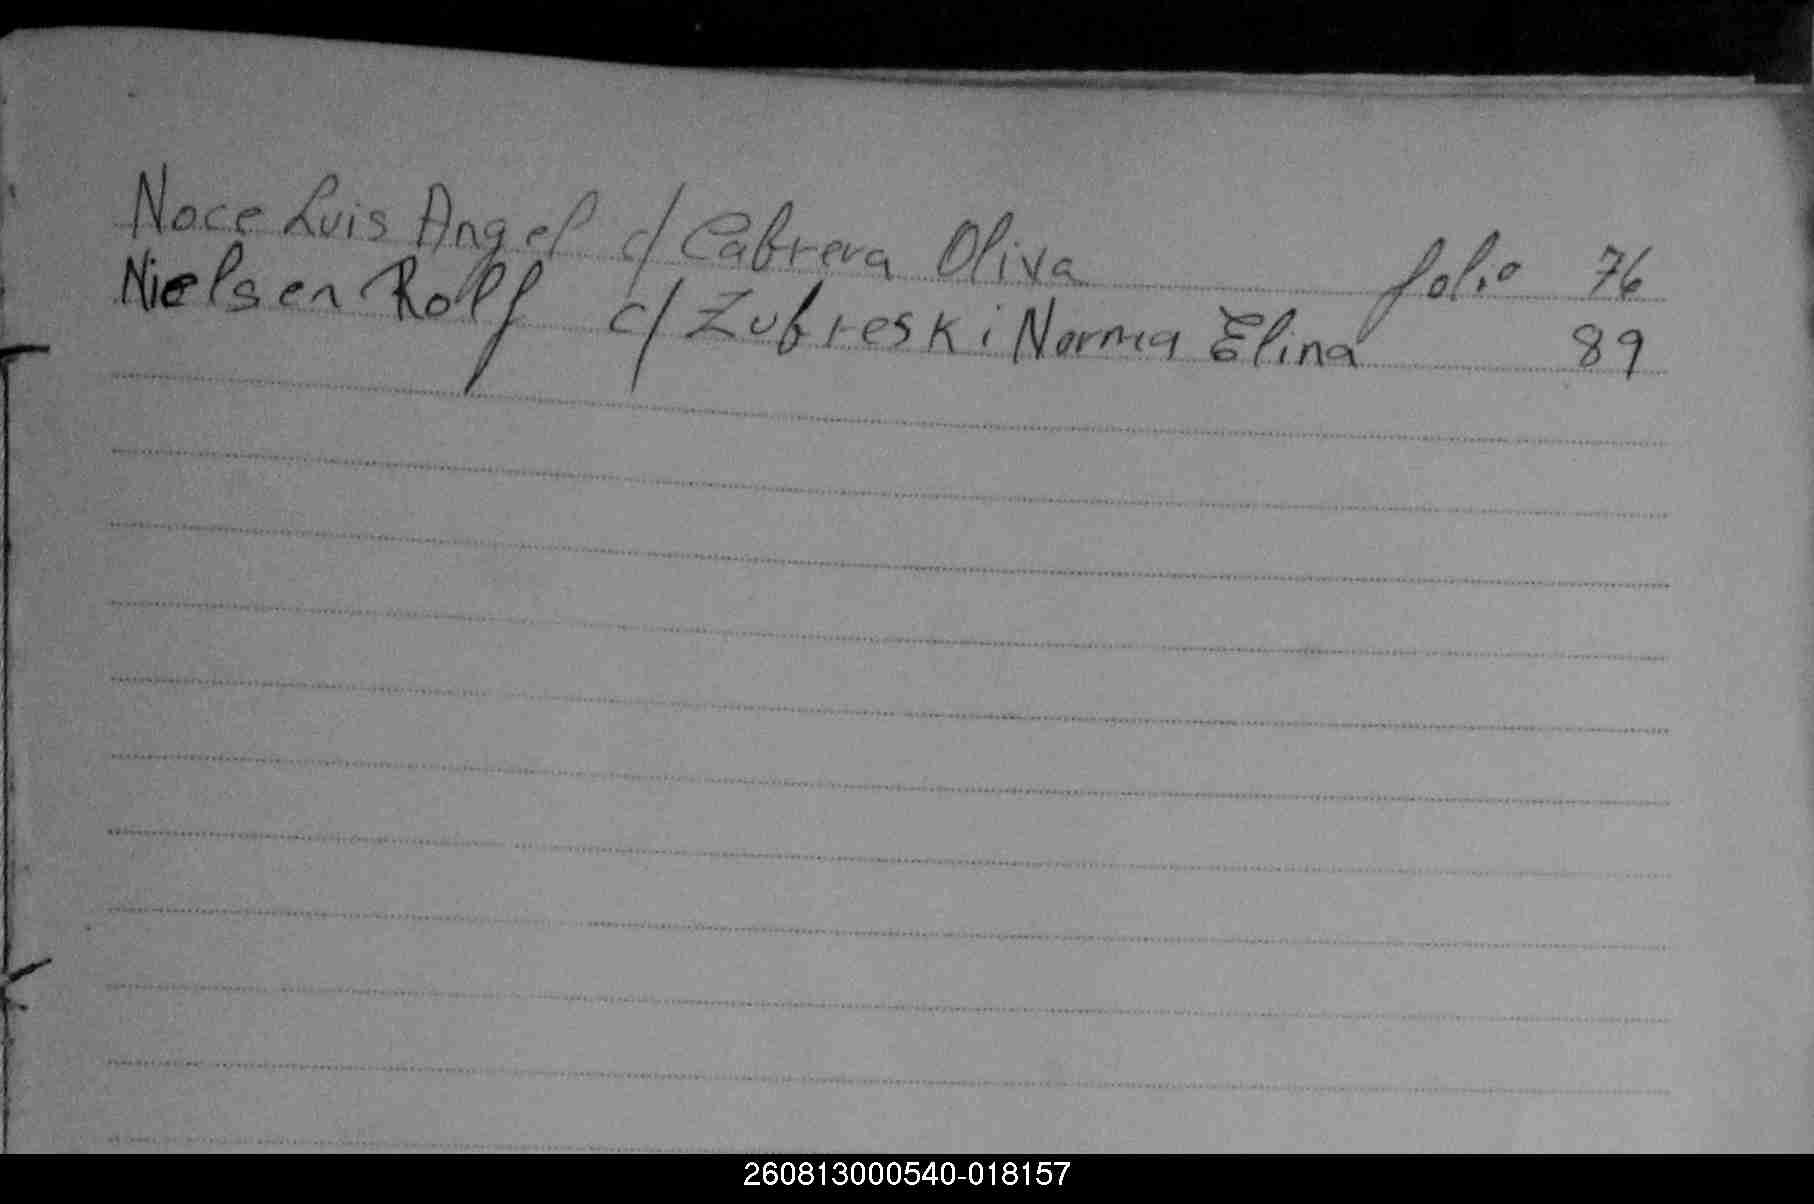 Noce Luis Angel c/ Cabrera Oliva folio 76
Nielsen Rolf c/ Zubreski Norma Elina 89
260813000540-018157